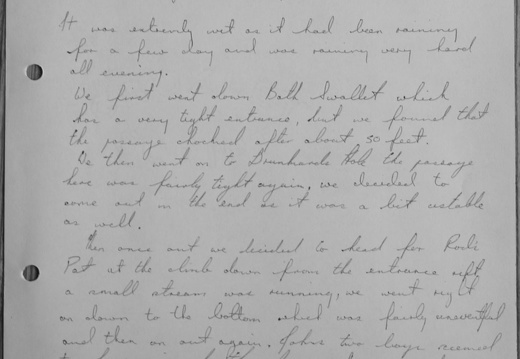 It was extremly wet as it had been raining
for a few day and was raining very hard
all evening.
We first went down Bath Swallet which
has a very tight entrance, but we found that
the passage chocked after about 50 feet.
We then went on to Drunkards Hole the passage
here was fairly tight again, we decided to
come out in the end as it was a bit ustable
as well.
Then once out we decided to head for Rods
Pot at the climb down from the entrance rift
a small stream was running, we went right
on down to the bottom which was fairly uneventful
and then on out again. Johns two boys seemed